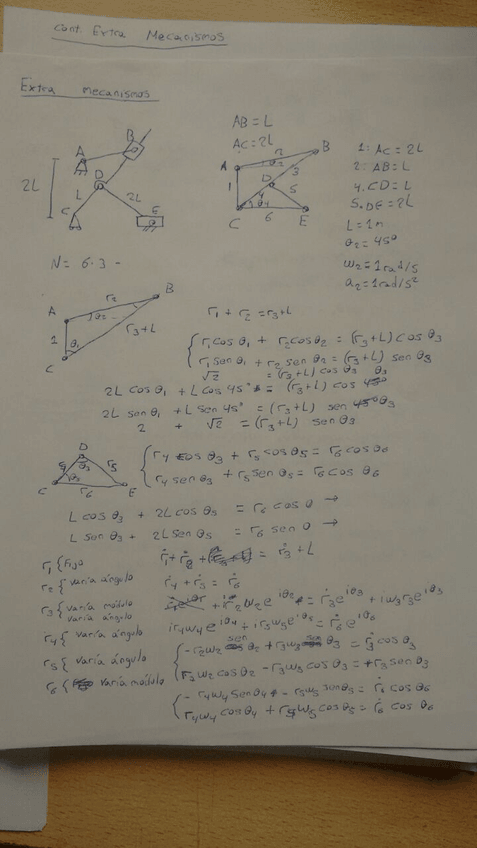 Cont. Extra Mecanismos
Extra mecanismos
A B D C E
2L L 2L
AB = L
AC = 2L
A B C D E
1 2 θ2 3 4 5 θ4 6
1: AC = 2L
2: AB = L
4. CD = L
5. DE = 2L
L = 1m
θ2 = 45º
ω2 = 1 rad/s
a2 = 1 rad/s²
N = 6·3 -
A B C
r2 θ2 r3+L θ1
r1 + r2 = r3+L
r1 cos θ1 + r2 cos θ2 = (r3+L) cos θ3
r1 sen θ1 + r2 sen θ2 = (r3+L) sen θ3
√2 = (r3+L) cos θ3
2L cos θ1 + L cos 45º = (r3+L) cos θ3
2L sen θ1 + L sen 45º = (r3+L) sen θ3
2 + √2 = (r3+L) sen θ3
D C E
r5 r6 θ3
r4 cos θ3 + r5 cos θ5 = r6 cos θ6
r4 sen θ3 + r5 sen θ5 = r6 cos θ6
L cos θ3 + 2L cos θ5 = r6 cos 0 →
L sen θ3 + 2L sen θ5 = r6 sen 0 →
r1 { Fijo
r2 { varía ángulo
r3 { varía módulo
varía ángulo
r4 { varía ángulo
r5 { varía ángulo
r6 { varía módulo
ṙ1 + ṙ2 = ṙ3 + L
ṙ4 + ṙ5 = ṙ6
+ i r2 ω2 e^iθ2 = ṙ3 e^iθ3 + i ω3 r3 e^iθ3
i r4 ω4 e^iθ4 + i r5 ω5 e^iθ5 = ṙ6 e^iθ6
- r2 ω2 sen θ2 + r3 ω3 sen θ3 = ṙ3 cos θ3
r2 ω2 cos θ2 - r3 ω3 cos θ3 = + r3 sen θ3
- r4 ω4 sen θ4 - r5 ω5 sen θ5 = ṙ6 cos θ6
r4 ω4 cos θ4 + r5 ω5 cos θ5 = ṙ6 cos θ6